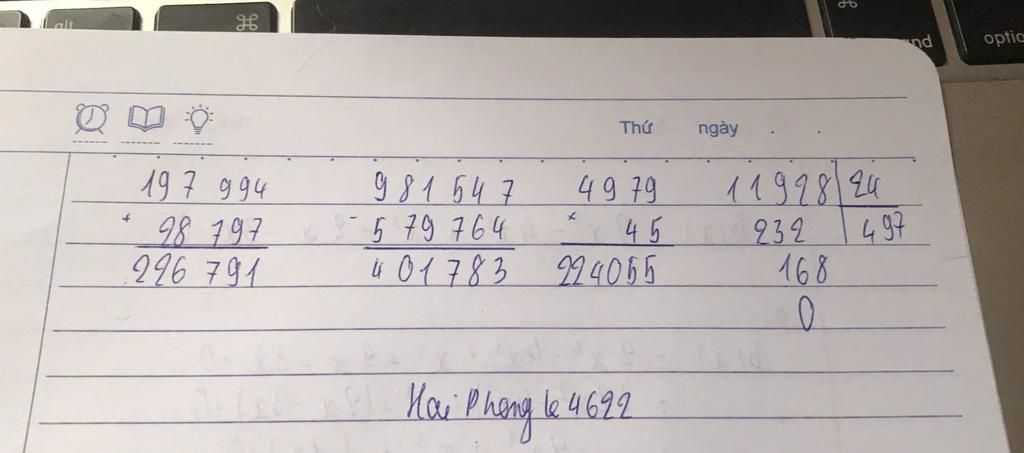 alt
⌘
⌘
optio
Thứ ngày . .
197 994 981 547 4979 11928 24
+ 28 797 - 579 764 × 45 232 497
226 791 401783 224055 168
0
Hai Phong le 4622